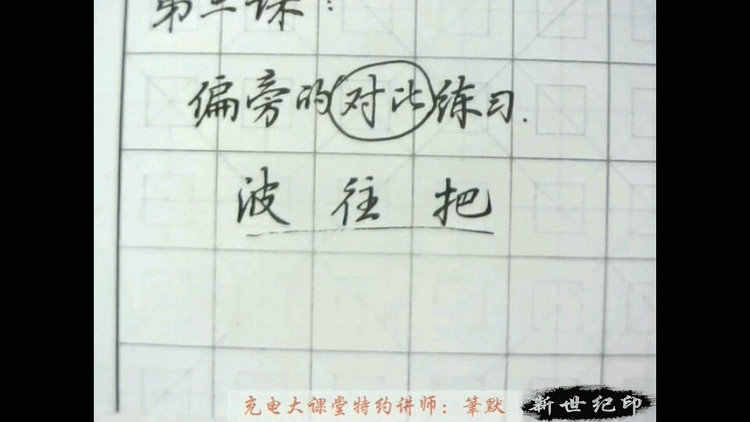 第二课：
偏旁的对比练习.
波 往 把
充电大课堂特约讲师：笔默
新世纪印